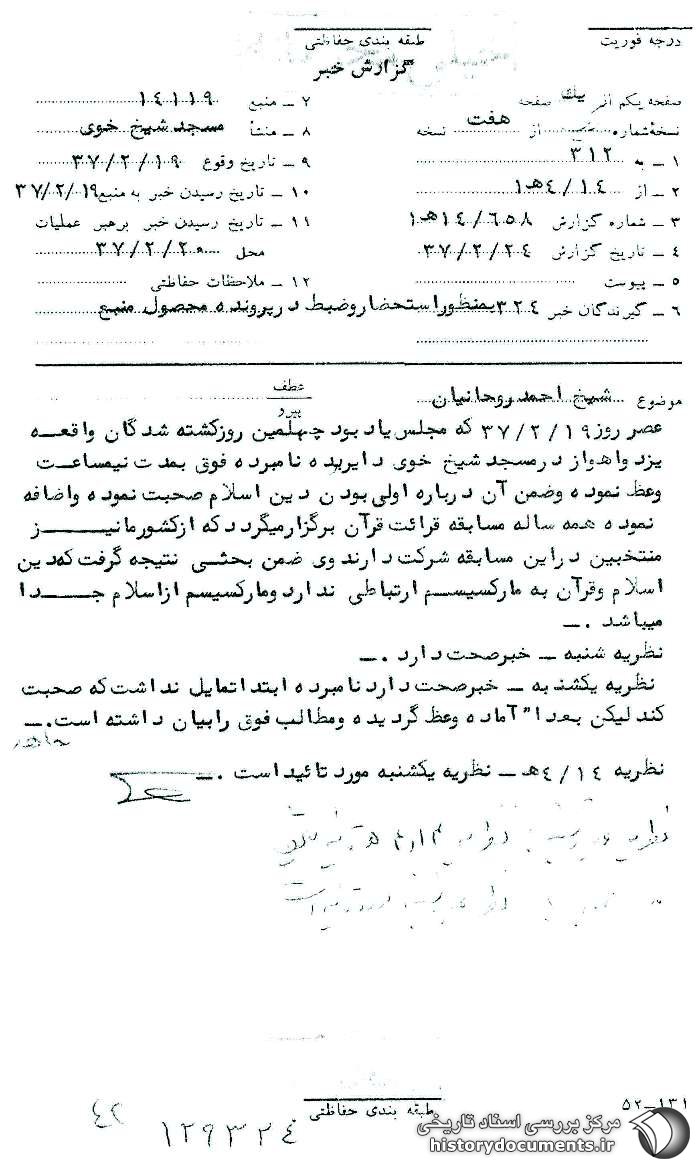 درجه فوریت
طبقه بندی حفاظتی
گزارش خبر
صفحه یکم از یک صفحه
نسخهٔ شماره از هفت نسخه
۱ ـ به ۳۱۲
۲ ـ از ۱۴/۴هـ۱
۳ ـ شماره گزارش ۱۴/۶۵۸هـ۱
۴ ـ تاریخ گزارش ۳۷/۲/۲۴
۵ ـ پیوست
۶ ـ گیرندگان خبر ۳۲۴ بمنظور استحضار وضبط در پرونده محصول منبع
۷ ـ منبع ۱۴۱۱۹
۸ ـ منشأ مسجد شیخ خوی
۹ ـ تاریخ وقوع ۳۷/۲/۱۹
۱۰ ـ تاریخ رسیدن خبر به منبع ۳۷/۲/۱۹
۱۱ ـ تاریخ رسیدن خبر برهبر عملیات
محل ۳۷/۲/۲۰
۱۲ ـ ملاحظات حفاظتی
موضوع شیخ احمد روحانیان
عطف
پیرو
عصر روز ۳۷/۲/۱۹ که مجلس یاد بود چهلمین روز کشته شدگان واقعه
یزد واهواز در مسجد شیخ خوی دایر بده نامبرده فوق بمدت نیمساعت
وعظ نموده وضمن آن درباره اولی بودن دین اسلام صحبت نموده واضافه
نموده همه ساله مسابقه قرائت قرآن برگزار میگردد که از کشور ما نیز
منتخبین در این مسابقه شرکت دارند وی ضمن بحثی نتیجه گرفت که دین
اسلام وقرآن به مارکسیسم ارتباطی ندارد ومارکسیسم از اسلام جدا
میباشد .ـ
نظریه شنبه ـ خبر صحت دارد .ـ
نظریه یکشنبه ـ خبر صحت دارد نامبرده ابتدا تمایل نداشت که صحبت
کند لیکن بعدا" آماده وعظ گردیده ومطالب فوق را بیان داشته است.ـ
نظریه ۱۴/۴هـ ـ نظریه یکشنبه مورد تائید است .ـ
طبقه بندی حفاظتی
۵۲-۱۳۱
۴۲
۱۲۹۳۲۴
مرکز بررسی اسناد تاریخی
historydocuments.ir